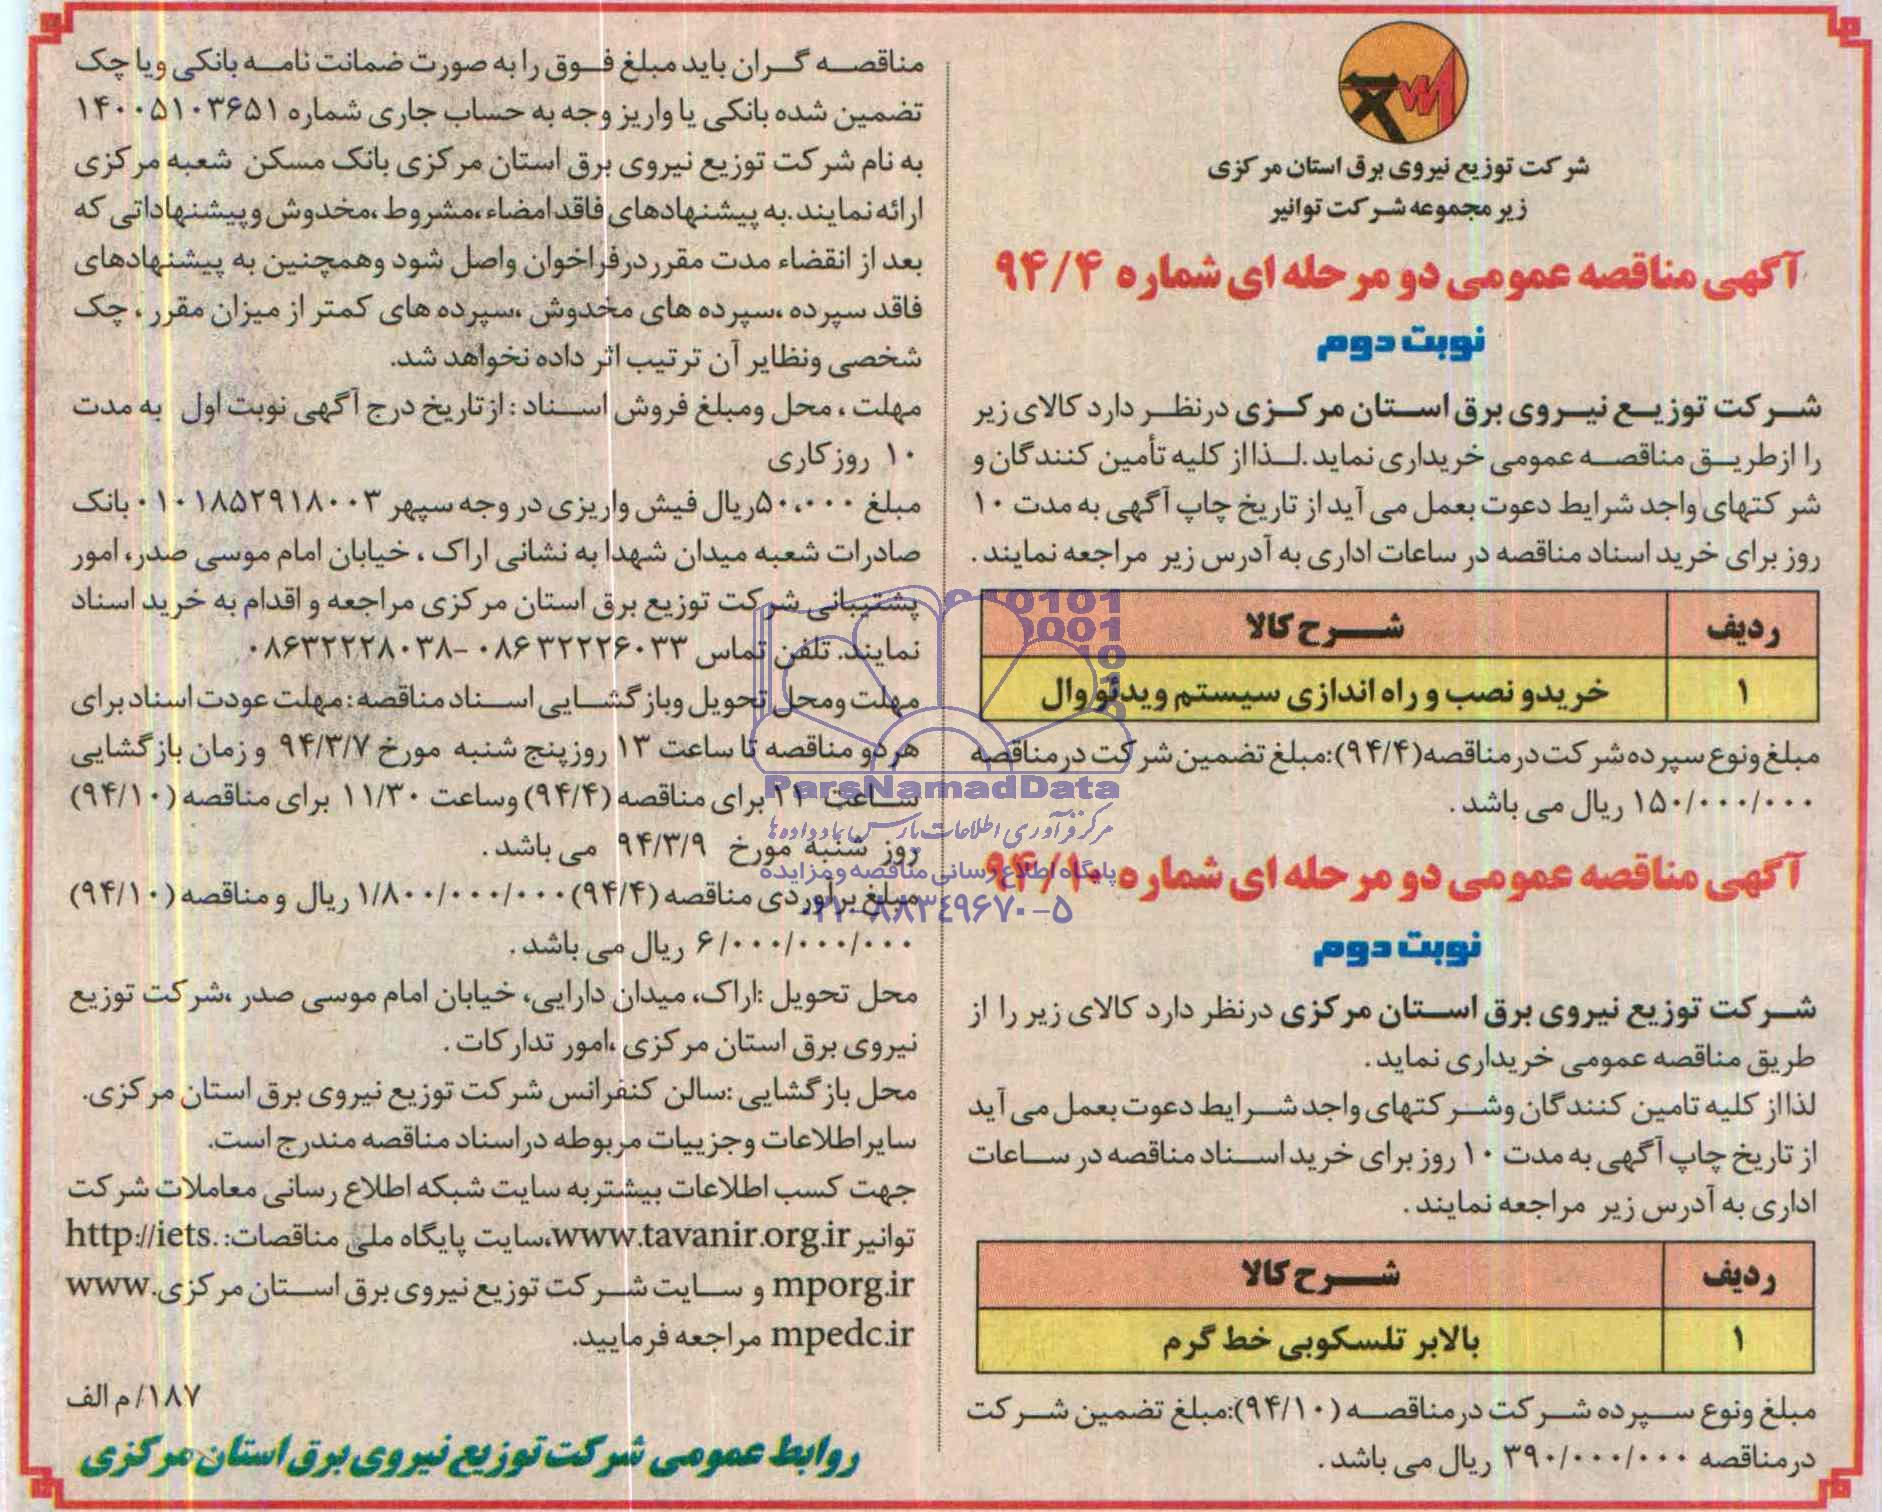 شرکت توزیع نیروی برق استان مرکزی
زیر مجموعه شرکت توانیر
آگهی مناقصه عمومی دو مرحله ای شماره ۹۴/۴
نوبت دوم
شرکت توزیع نیروی برق استان مرکزی درنظر دارد کالای زیر
را از طریق مناقصه عمومی خریداری نماید. لذا از کلیه تأمین کنندگان و
شرکتهای واجد شرایط دعوت بعمل می آید از تاریخ چاپ آگهی به مدت ۱۰
روز برای خرید اسناد مناقصه در ساعات اداری به آدرس زیر مراجعه نمایند.
ردیف شرح کالا
۱ خرید و نصب و راه اندازی سیستم ویدئووال
مبلغ ونوع سپرده شرکت در مناقصه (۹۴/۴): مبلغ تضمین شرکت در مناقصه
۱۵۰/۰۰۰/۰۰۰ ریال می باشد.
آگهی مناقصه عمومی دو مرحله ای شماره ۹۴/۱۰
نوبت دوم
شرکت توزیع نیروی برق استان مرکزی درنظر دارد کالای زیر را از
طریق مناقصه عمومی خریداری نماید.
لذا از کلیه تامین کنندگان وشرکتهای واجد شرایط دعوت بعمل می آید
از تاریخ چاپ آگهی به مدت ۱۰ روز برای خرید اسناد مناقصه در ساعات
اداری به آدرس زیر مراجعه نمایند.
ردیف شرح کالا
۱ بالابر تلسکوبی خط گرم
مبلغ ونوع سپرده شرکت در مناقصه (۹۴/۱۰): مبلغ تضمین شرکت
در مناقصه ۳۹۰/۰۰۰/۰۰۰ ریال می باشد.
مناقصه گران باید مبلغ فوق را به صورت ضمانت نامه بانکی ویا چک
تضمین شده بانکی یا واریز وجه به حساب جاری شماره ۱۴۰۰۵۱۰۳۶۵۱
به نام شرکت توزیع نیروی برق استان مرکزی بانک مسکن شعبه مرکزی
ارائه نمایند. به پیشنهادهای فاقد امضاء، مشروط، مخدوش وپیشنهاداتی که
بعد از انقضاء مدت مقرر در فراخوان واصل شود وهمچنین به پیشنهادهای
فاقد سپرده، سپرده های مخدوش، سپرده های کمتر از میزان مقرر، چک
شخصی ونظایر آن ترتیب اثر داده نخواهد شد.
مهلت، محل ومبلغ فروش اسناد: از تاریخ درج آگهی نوبت اول به مدت
۱۰ روز کاری
مبلغ ۵۰،۰۰۰ ریال فیش واریزی در وجه سپهر ۰۱۰۱۸۵۲۹۱۸۰۰۳ بانک
صادرات شعبه میدان شهدا به نشانی اراک، خیابان امام موسی صدر، امور
پشتیبانی شرکت توزیع برق استان مرکزی مراجعه و اقدام به خرید اسناد
نمایند. تلفن تماس ۰۸۶۳۲۲۲۶۰۳۳-۰۸۶۳۲۲۲۸۰۳۸
مهلت ومحل تحویل وبازگشایی اسناد مناقصه: مهلت عودت اسناد برای
هر دو مناقصه تا ساعت ۱۳ روز پنج شنبه مورخ ۹۴/۳/۷ و زمان بازگشایی
ساعت ۱۱ برای مناقصه (۹۴/۴) وساعت ۱۱/۳۰ برای مناقصه (۹۴/۱۰)
روز شنبه مورخ ۹۴/۳/۹ می باشد.
مبلغ برآوردی مناقصه (۹۴/۴) ۱/۸۰۰/۰۰۰/۰۰۰ ریال و مناقصه (۹۴/۱۰)
۶/۰۰۰/۰۰۰/۰۰۰ ریال می باشد.
محل تحویل: اراک، میدان دارایی، خیابان امام موسی صدر، شرکت توزیع
نیروی برق استان مرکزی، امور تدارکات.
محل بازگشایی: سالن کنفرانس شرکت توزیع نیروی برق استان مرکزی.
سایر اطلاعات وجزییات مربوطه در اسناد مناقصه مندرج است.
جهت کسب اطلاعات بیشتر به سایت شبکه اطلاع رسانی معاملات شرکت
توانیر www.tavanir.org.ir، سایت پایگاه ملی مناقصات: http://iets.
mporg.ir و سایت شرکت توزیع نیروی برق استان مرکزی www.
mpedc.ir مراجعه فرمایید.
۱۸۷/م الف
روابط عمومی شرکت توزیع نیروی برق استان مرکزی
ParsNamadData
مرکز فرآوری اطلاعات پارس نماد داده ها
پایگاه اطلاع رسانی مناقصه و مزایده
۰۲۱-۸۸۳۴۹۶۷۰-۵